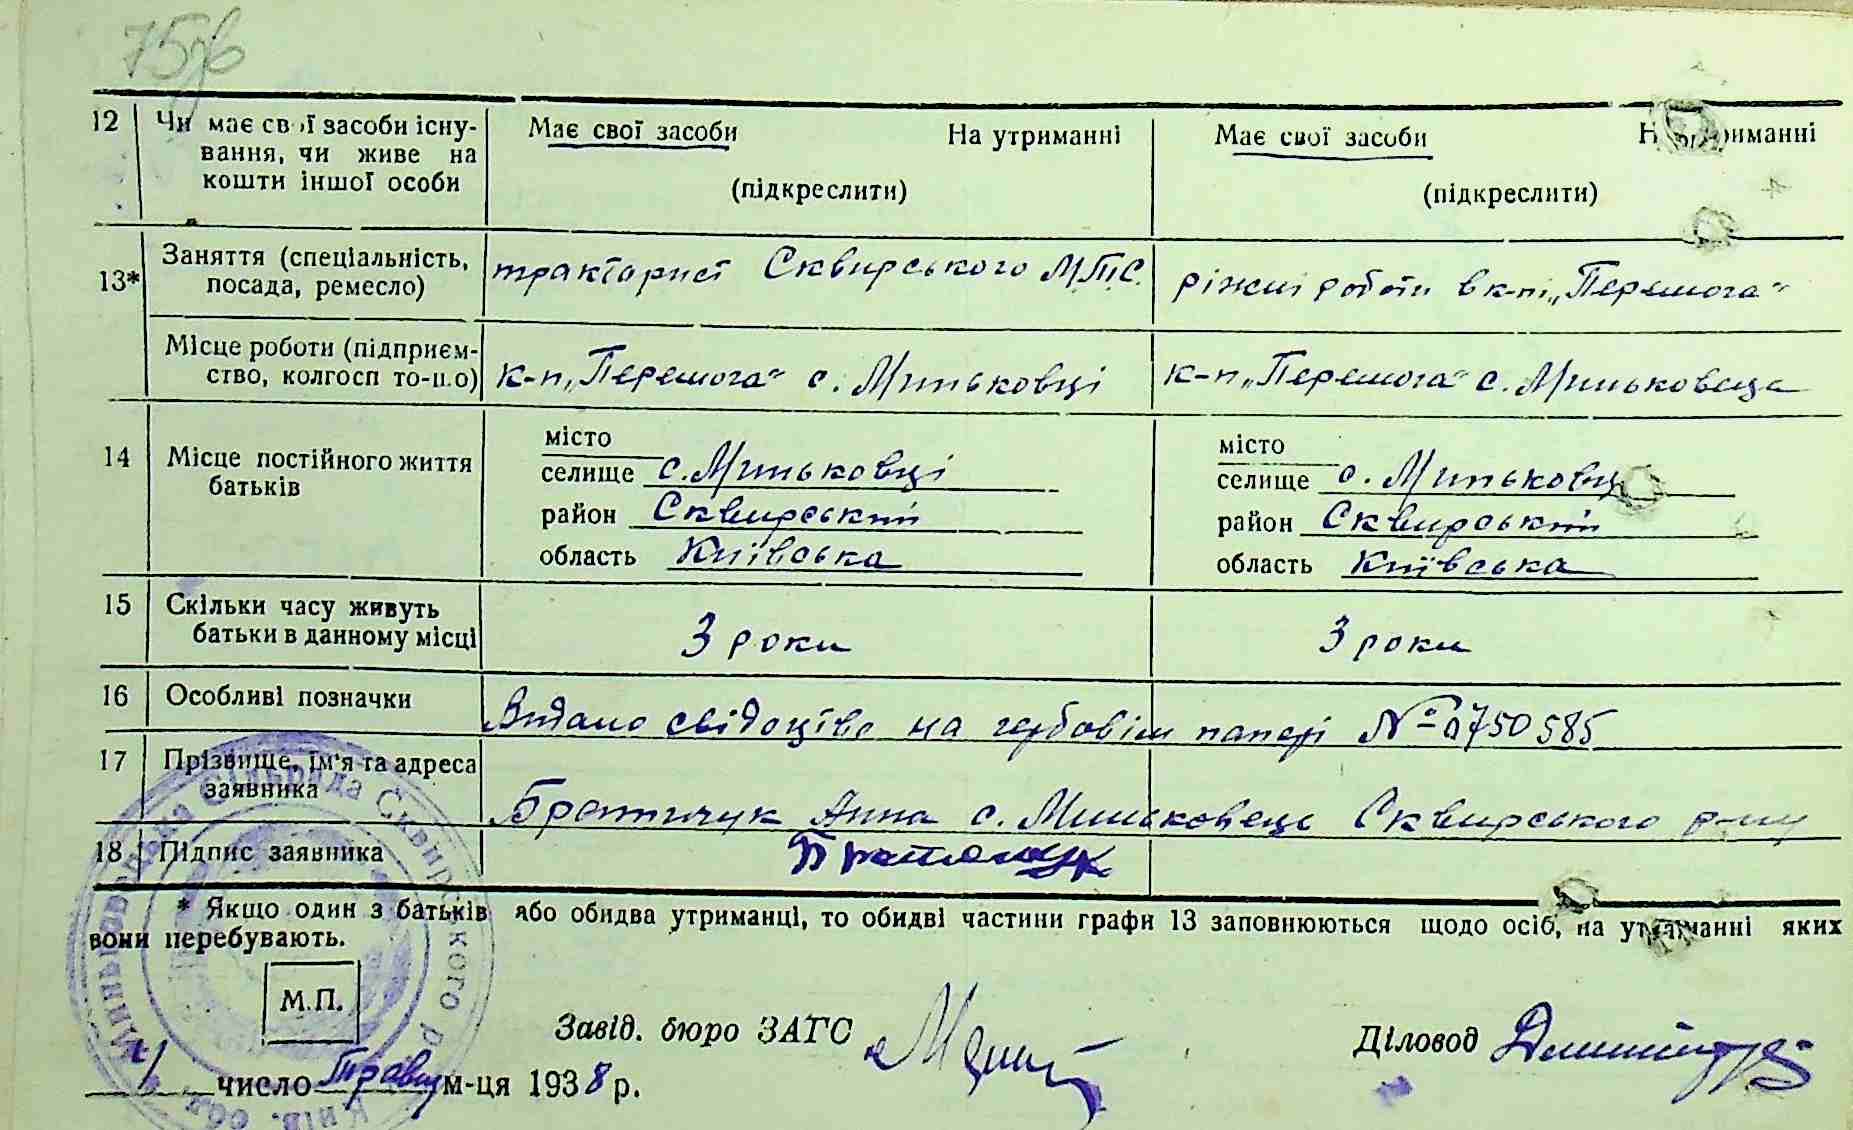 75
12 Чи має свої засоби існу- Має свої засоби На утриманні Має свої засоби На утриманні
вання, чи живе на
кошти іншої особи (підкреслити) (підкреслити)
13* Заняття (спеціальність, тракторист Сквирського М.Т.С. ріжні роботи в к-пі „Перемога"
посада, ремесло)
Місце роботи (підприєм- к-п „Перемога" с. Миньковці к-п „Перемога" с. Миньковеца
ство, колгосп то-що)
14 Місце постійного життя місто місто
батьків селище с. Миньковці селище с. Миньковці
район Сквирський район Сквирський
область Київська область Київська
15 Скільки часу живуть 3 роки 3 роки
батьки в данному місці
16 Особливі позначки Видано свідоцтво на гербовім папері № 0750585
17 Прізвище, ім'я та адреса
заявника Братичук Анна с. Миньковець Сквирського р-ну
18 Підпис заявника
* Якщо один з батьків або обидва утриманці, то обидві частини графи 13 заповнюються щодо осіб, на утриманні яких
вони перебувають.
М.П.
Завід. бюро ЗАГС Діловод
4 число Травня м-ця 1938 р.
Миньковецька Сільрада Сквирського р. Київ. обл.